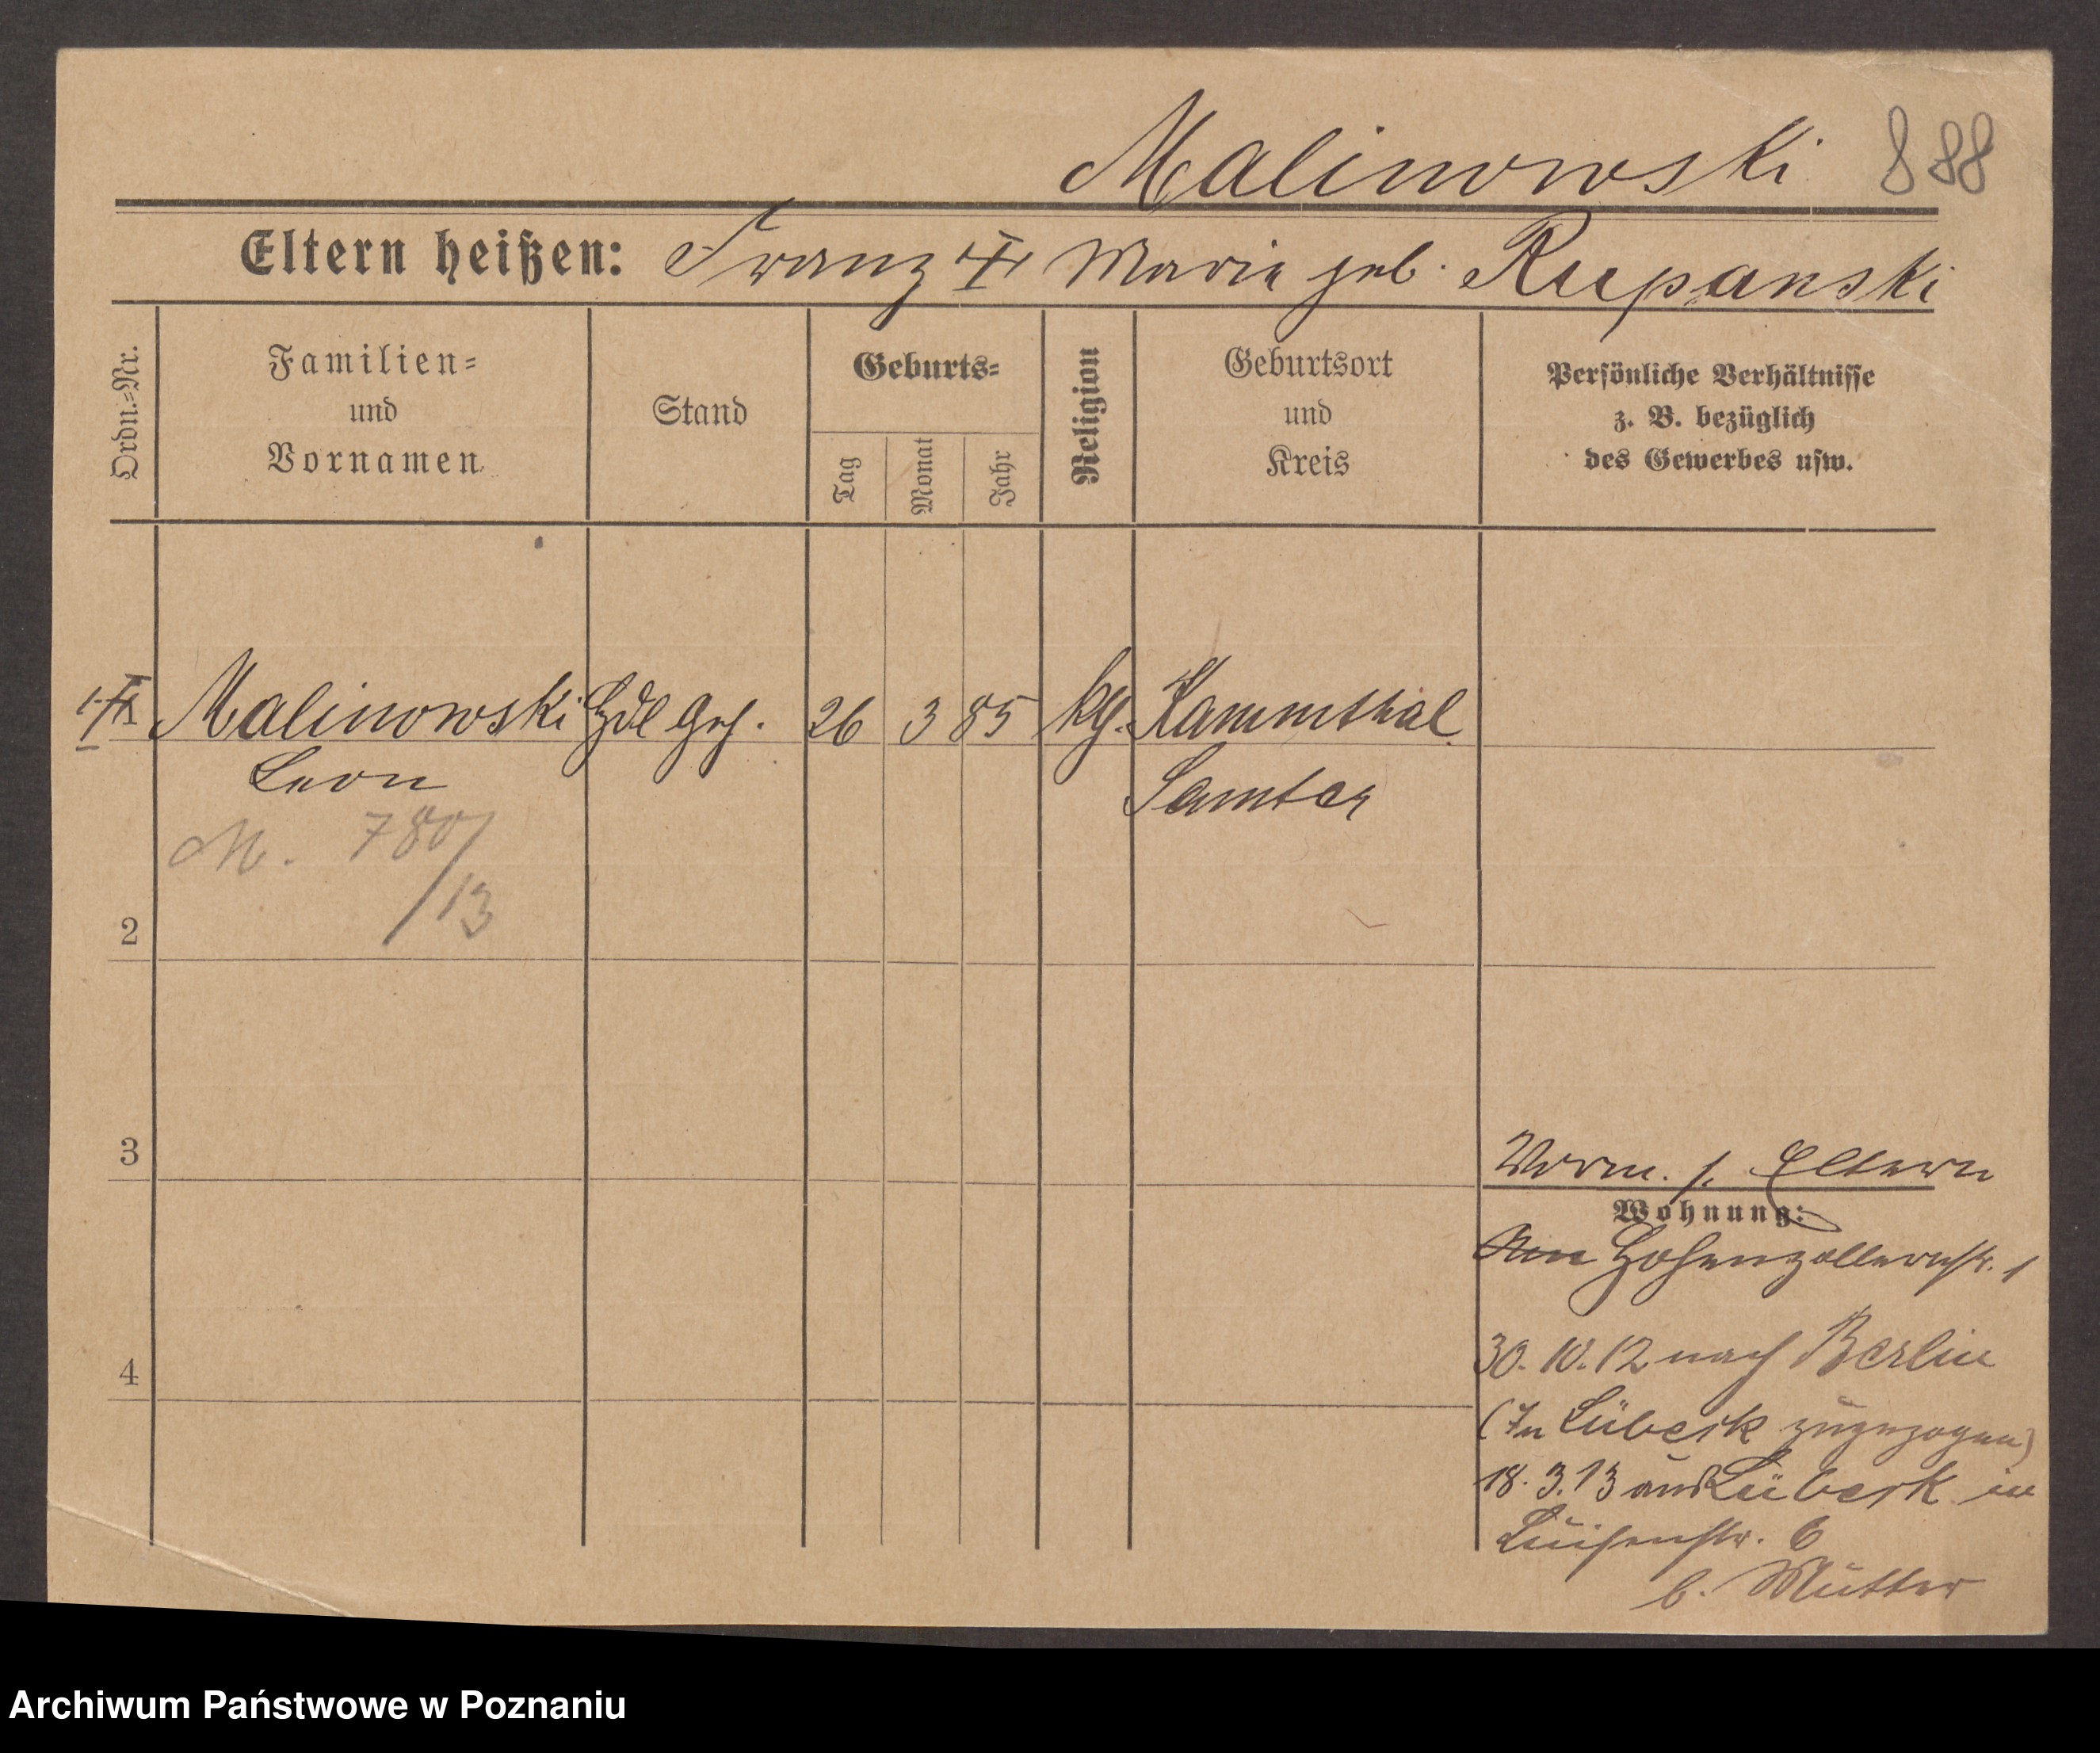 Malinowski 888
Eltern heißen: Franz ‡ Marie geb. Rupanski
Ordn.-Nr.
Familien=
und
Vornamen
Stand
Geburts=
Tag
Monat
Jahr
Religion
Geburtsort
und
Kreis
Persönliche Verhältnisse
z. B. bezüglich
des Gewerbes usw.
Malinowski Hdl Geh. 26 3 85 kth. Kammthal
Leon Samter
M. 780/
/13
2
3
4
Vorm. s. Eltern
Wohnung:
Hohenzollernstr. 1
30. 10. 12 nach Berlin
(In Lübeck zugezogen)
18. 3. 13 aus Lübeck in
Luisenstr. 6
b. Mutter
Archiwum Państwowe w Poznaniu